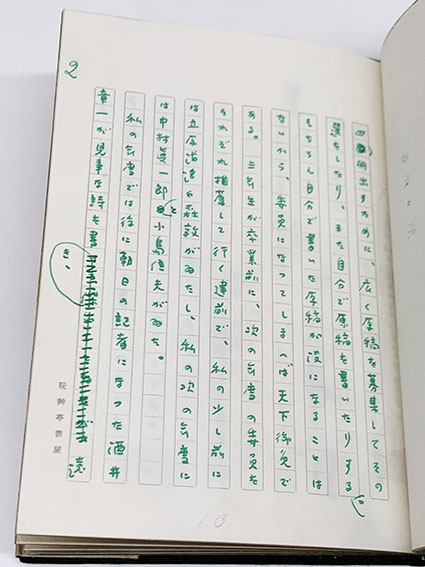 四冊出すために、広く原稿を募集してその
選をしたり、また自分で原稿を書いたりする。
もちろん自分で書いた原稿が没になることは
ないから、委員になってしまへば天下御免で
ある。三年生が卒業前に、次の年度の委員を
それぞれ推薦して行く建前で、私の少し前に
は立原道造や杉浦がゐたし、私の次の年度に
は中村眞一郎と小島信夫がゐた。
私の年度では後に朝日の記者になった酒井
章一が見事な詩を書き、
2
10